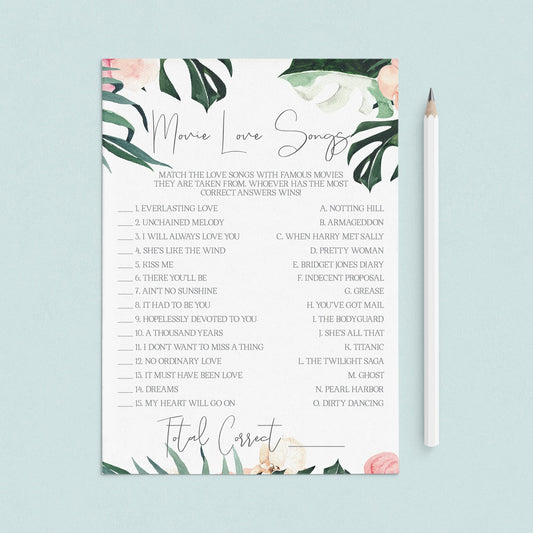 Movie Love Songs
MATCH THE LOVE SONGS WITH FAMOUS MOVIES
THEY ARE TAKEN FROM. WHOEVER HAS THE MOST
CORRECT ANSWERS WINS!
___ 1. EVERLASTING LOVE
___ 2. UNCHAINED MELODY
___ 3. I WILL ALWAYS LOVE YOU
___ 4. SHE'S LIKE THE WIND
___ 5. KISS ME
___ 6. THERE YOU'LL BE
___ 7. AIN'T NO SUNSHINE
___ 8. IT HAD TO BE YOU
___ 9. HOPELESSLY DEVOTED TO YOU
___ 10. A THOUSAND YEARS
___ 11. I DON'T WANT TO MISS A THING
___ 12. NO ORDINARY LOVE
___ 13. IT MUST HAVE BEEN LOVE
___ 14. DREAMS
___ 15. MY HEART WILL GO ON
A. NOTTING HILL
B. ARMAGEDDON
C. WHEN HARRY MET SALLY
D. PRETTY WOMAN
E. BRIDGET JONES DIARY
F. INDECENT PROPOSAL
G. GREASE
H. YOU'VE GOT MAIL
I. THE BODYGUARD
J. SHE'S ALL THAT
K. TITANIC
L. THE TWILIGHT SAGA
M. GHOST
N. PEARL HARBOR
O. DIRTY DANCING
Total Correct ______